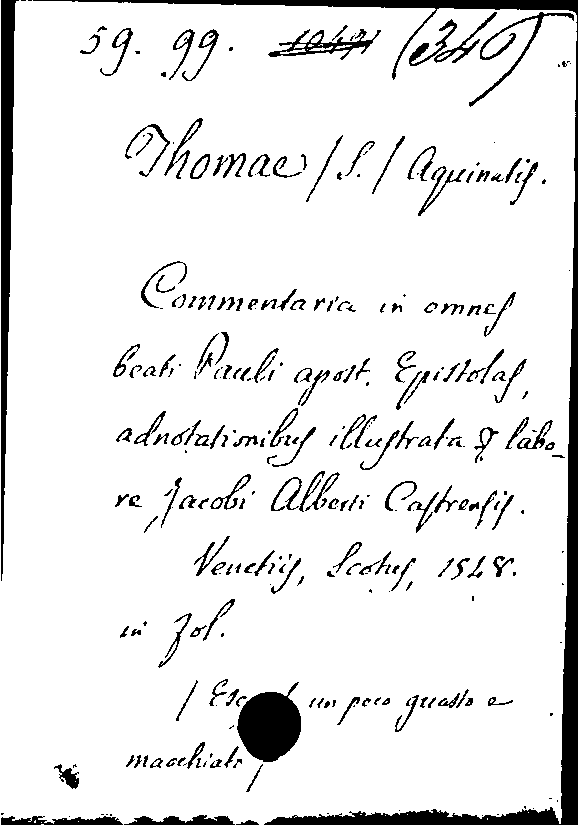 59. 99. (346)
Thomae / S. / Aquinatis.
Commentaria in omnes
beati Pauli apost. Epistolas,
adnotationibus illustrata & labo-
re Jacobi Alberti Castrensis.
Venetiis, Scotus, 1548.
in fol.
/ un poco guasto e
macchiato /